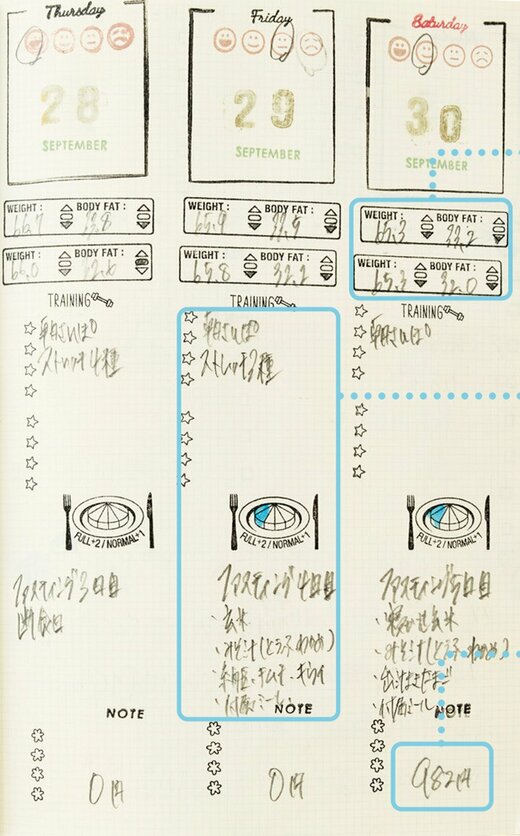 Thursday
28
SEPTEMBER
WEIGHT: BODY FAT:
66.7 33.8
WEIGHT: BODY FAT:
66.0 32.6
TRAINING
朝さんぽ
ストレッチ4種
FULL+2/NORMAL+1
ファスティング3日目
断食日
NOTE
0円
Friday
29
SEPTEMBER
WEIGHT: BODY FAT:
65.9 33.5
WEIGHT: BODY FAT:
65.8 32.2
TRAINING
朝さんぽ
ストレッチ3種
FULL+2/NORMAL+1
ファスティング4日目
・玄米
・みそ汁(とうふ・わかめ)
・納豆・キムチ
NOTE
0円
Saturday
30
SEPTEMBER
WEIGHT: BODY FAT:
65.3 33.2
WEIGHT: BODY FAT:
65.3 32.0
TRAINING
朝さんぽ
FULL+2/NORMAL+1
ファスティング5日目
・寝かせ玄米
・みそ汁(とうふ・わかめ)
・出汁まきたまご
NOTE
982円